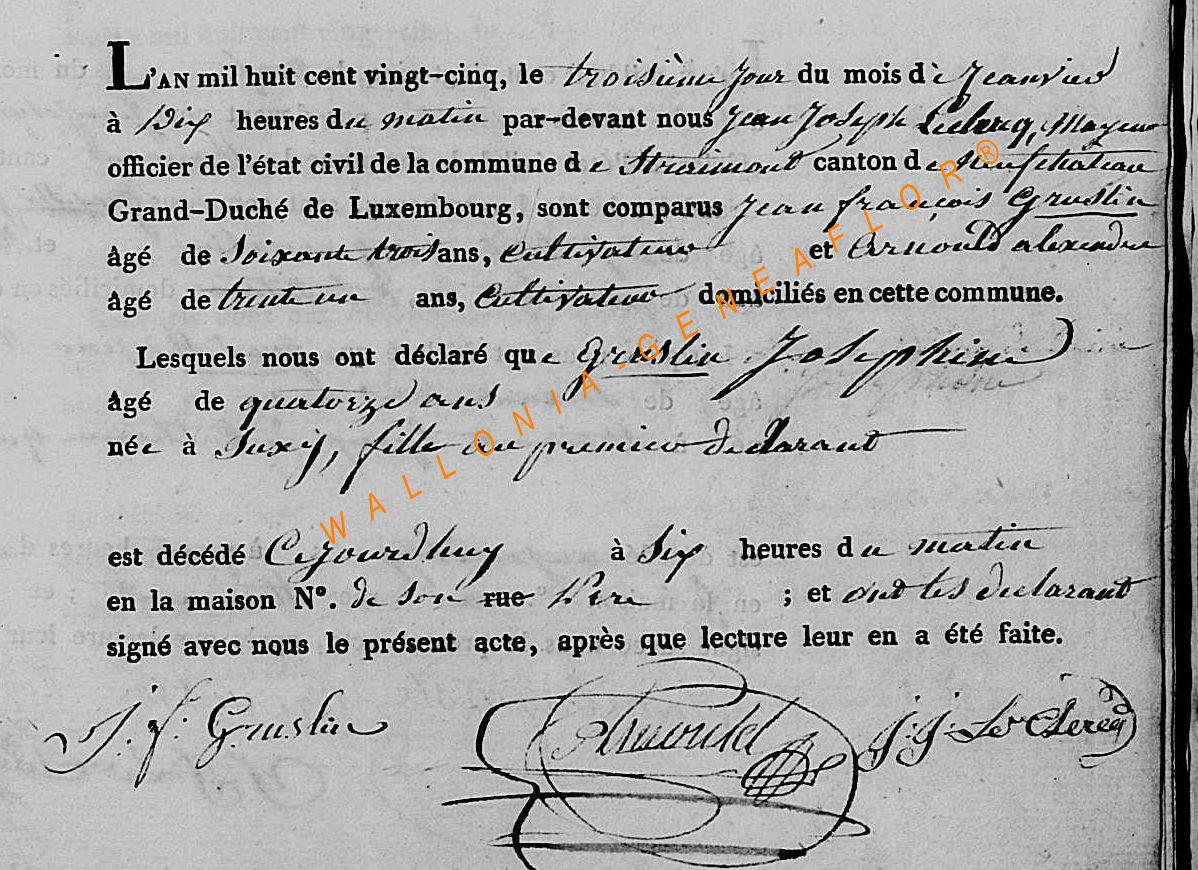 L'AN mil huit cent vingt-cinq, le troisième jour du mois de Jeanvier
à Dix heures du matin par-devant nous Jean Joseph Leclercq, Mayeur
officier de l'état civil de la commune de Straimont canton de neufchateau
Grand-Duché de Luxembourg, sont comparus Jean françois Gruslin
âgé de Soixante trois ans, Cultivateur et Arnould alexandre
âgé de trente un ans, Cultivateur domiciliés en cette commune.
Lesquels nous ont déclaré que Gruslin Josephine
âgé de quatorze ans
née à Juxÿ, fille au premier declarant
est décédé Cejourdhuy à Six heures du matin
en la maison N°. de son rue Pere ; et ont les declarant
signé avec nous le présent acte, après que lecture leur en a été faite.
J. f. Gruslin Arnould J. J. Le Clercq
WALLONIA-GENEAFLOR®